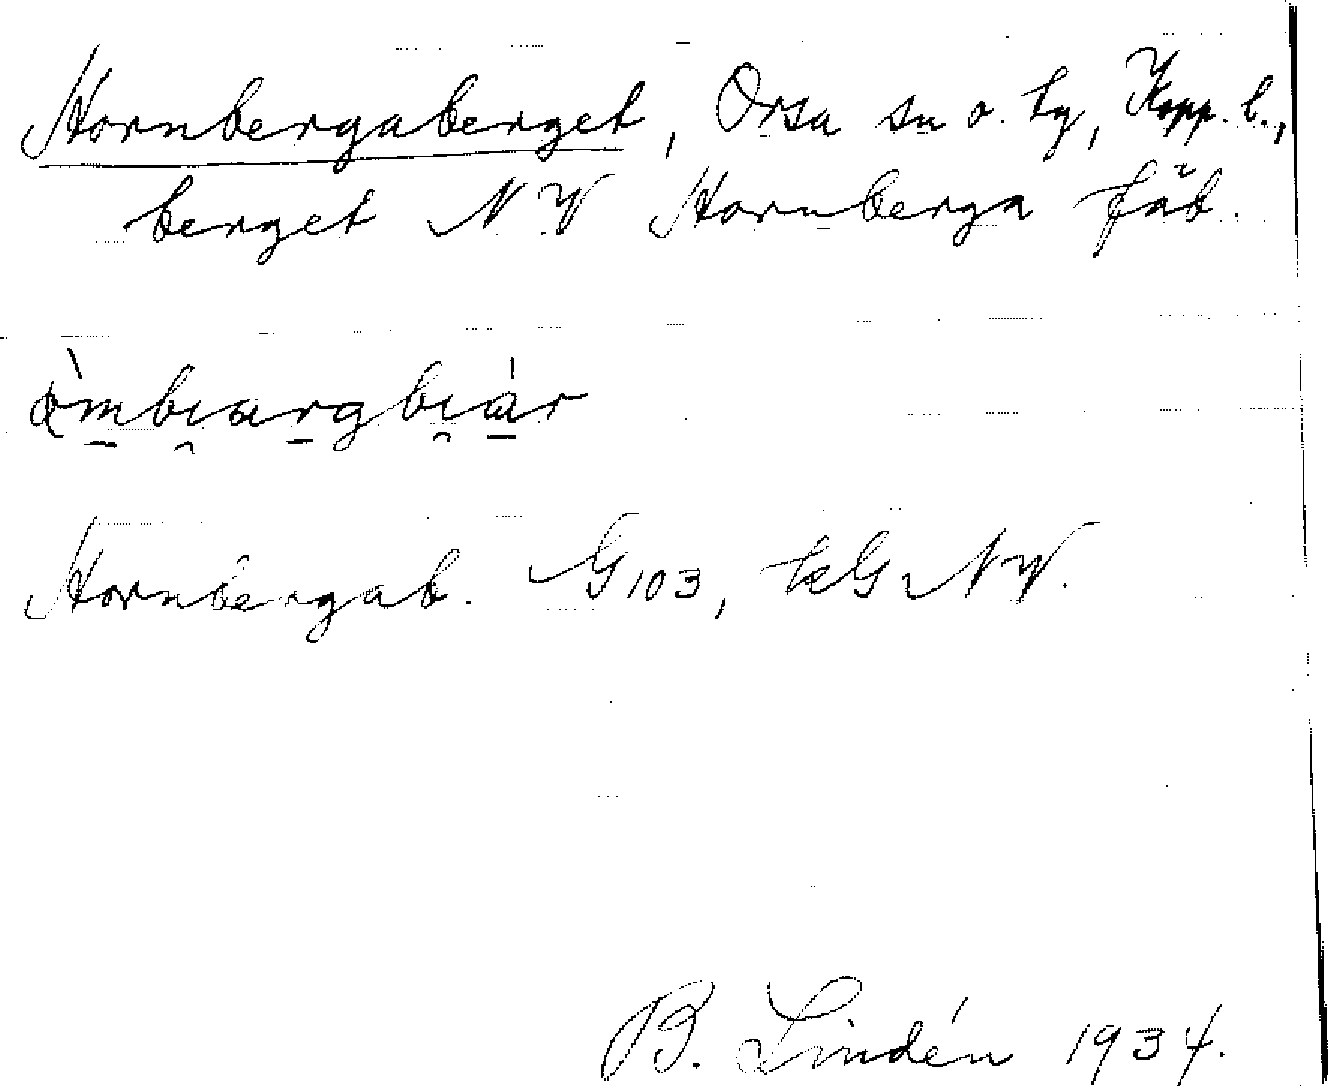 Hornbergaberget, Orsa sn o. tg, Kopp. l.,
berget NV Hornberga fäb.
Hornbergab. G103, kG NV.
B. Lindén 1934.